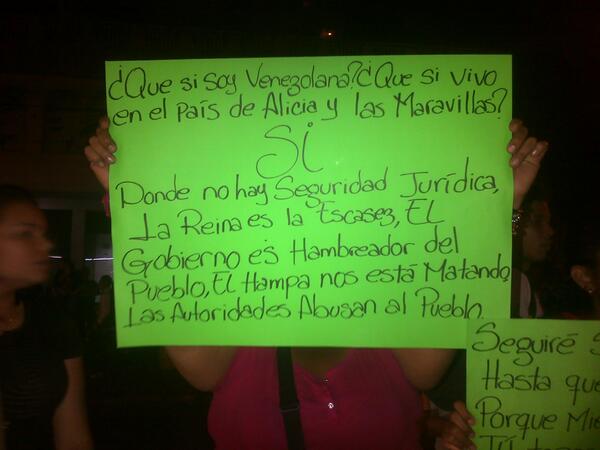 ¿Que si soy Venezolana? ¿Que si vivo
en el país de Alicia y las Maravillas?
SI
Donde no hay Seguridad Jurídica,
La Reina es la Escasez, EL
Gobierno es Hambreador del
Pueblo, El Hampa nos está Matando,
Las Autoridades Abusan al Pueblo.
Seguiré
Hasta que
Porque
Tú